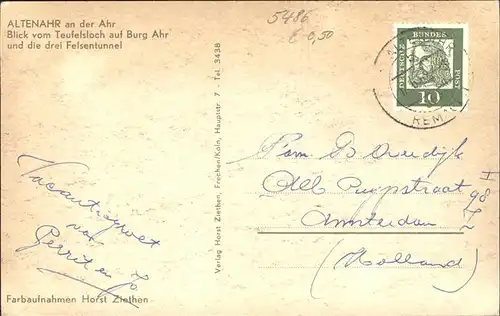 ALTENAHR an der Ahr
Blick vom Teufelsloch auf Burg Ahr
und die drei Felsentunnel
5486
€ 0,50
DEUTSCHE BUNDES POST
10
REM
Verlag Horst Ziethen, Frechen/Köln, Hauptstr. 7 Tel. 3438
Fam. B Overdijk
Alb Cuypstraat 98 I
Amsterdam Z
(Holland)
Vacantiegroet
van
Gerrit en Jo
Farbaufnahmen Horst Ziethen